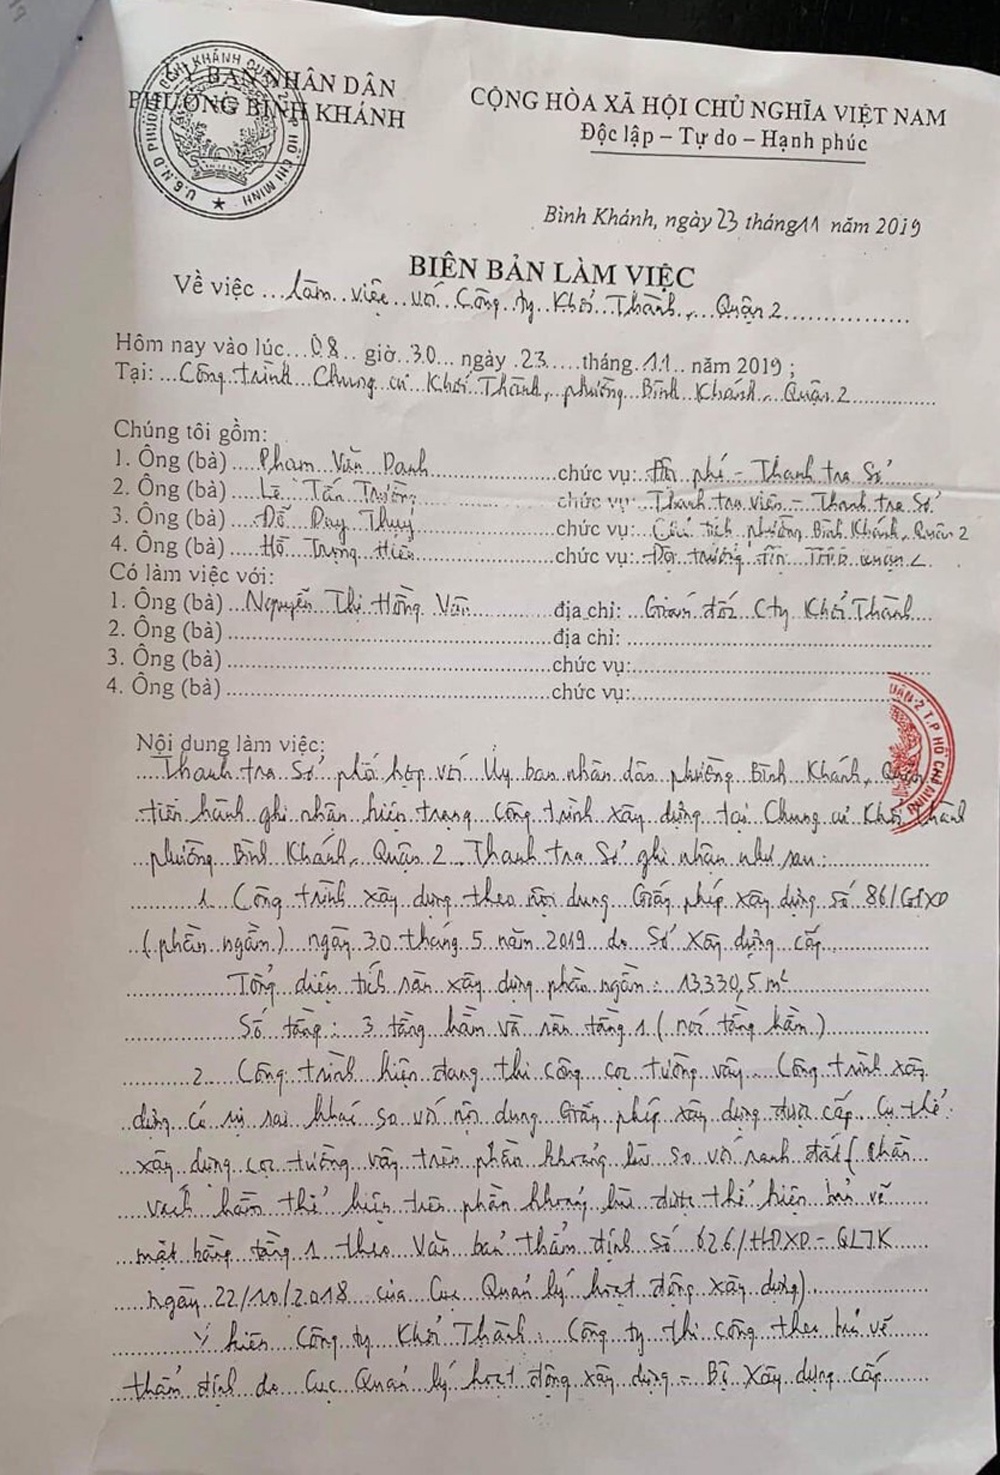 ỦY BAN NHÂN DÂN
PHƯỜNG BÌNH KHÁNH
CỘNG HÒA XÃ HỘI CHỦ NGHĨA VIỆT NAM
Độc lập – Tự do – Hạnh phúc
Bình Khánh, ngày 23 tháng 11 năm 2019
BIÊN BẢN LÀM VIỆC
Về việc làm việc với Công ty Khởi Thành, Quận 2
Hôm nay vào lúc 08 giờ 30 ngày 23 tháng 11 năm 2019 ;
Tại: Công trình Chung cư Khởi Thành, phường Bình Khánh, Quận 2
Chúng tôi gồm:
1. Ông (bà) Phạm Văn Danh chức vụ: Đội phó – Thanh tra Sở
2. Ông (bà) Lê Tấn Trường chức vụ: Thanh tra viên – Thanh tra Sở
3. Ông (bà) Đỗ Duy Thụy chức vụ: Chủ tịch phường Bình Khánh, Quận 2
4. Ông (bà) Hồ Trọng Hiền chức vụ: Đội trưởng quận 2
Có làm việc với:
1. Ông (bà) Nguyễn Thị Hồng Vân địa chỉ: Giám đốc Cty Khởi Thành
2. Ông (bà) địa chỉ:
3. Ông (bà) chức vụ:
4. Ông (bà) chức vụ:
Nội dung làm việc:
Thanh tra Sở phối hợp với Ủy ban nhân dân phường Bình Khánh, Quận
tiến hành ghi nhận hiện trạng công trình xây dựng tại Chung cư Khởi Thành
phường Bình Khánh, Quận 2. Thanh tra Sở ghi nhận như sau:
1. Công trình xây dựng theo nội dung Giấy phép xây dựng số 86/GPXD
(phần ngầm) ngày 30 tháng 5 năm 2019 do Sở Xây dựng cấp.
Tổng diện tích sàn xây dựng phần ngầm: 13.330,5 m²
Số tầng: 3 tầng hầm và sàn tầng 1 (nóc tầng hầm)
2. Công trình hiện đang thi công cọc tường vây. Công trình xây
dựng có sự sai khác so với nội dung Giấy phép xây dựng được cấp. Cụ thể:
xây dựng cọc tường vây trên phần khoảng lùi so với ranh đất (phần
vách hầm thể hiện trên phần khoảng lùi được thể hiện bản vẽ
mặt bằng tầng 1 theo Văn bản thẩm định số 626/HĐXD-QLTK
ngày 22/10/2018 của Cục Quản lý hoạt động xây dựng)
Ý kiến Công ty Khởi Thành: Công ty thi công theo bản vẽ
thẩm định do Cục Quản lý hoạt động xây dựng – Bộ Xây dựng cấp